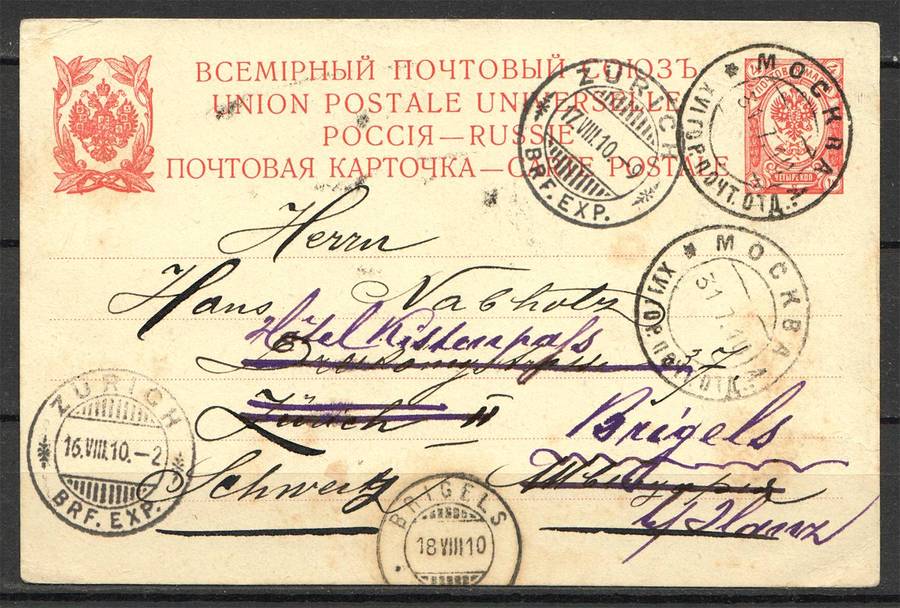 ВСЕМІРНЫЙ ПОЧТОВЫЙ СОЮЗЪ
UNION POSTALE UNIVERSELLE
РОССІЯ—RUSSIE
ПОЧТОВАЯ КАРТОЧКА—CARTE POSTALE
ЧЕТЫРЕ КОП
МОСКВА
ZÜRICH
17.VIII.10.-9
BRF. EXP.
МОСКВА
31.7.10
Herrn
Hans Nabholz
Hôtel Kistenpass
37
Zürich II
Brigels
Schweiz
b/ Ilanz
ZÜRICH
16.VIII.10.-2
BRF. EXP.
BRIGELS
18 VIII 10